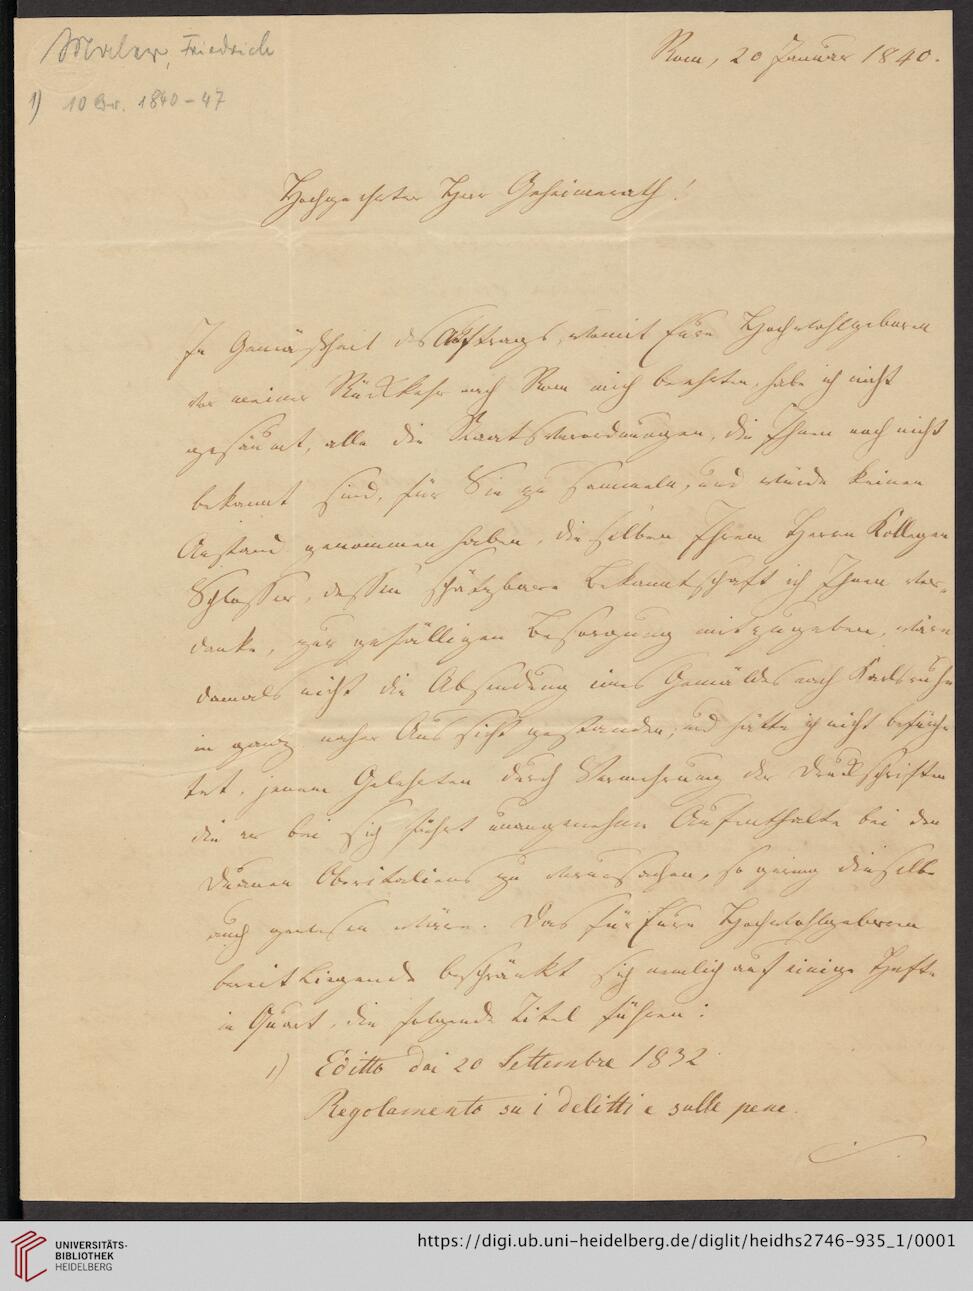 Maler, Friedrich
1) 10 Br. 1840-47
Rom, 20 Januar 1840.
Hochgeehrter Herr Geheimerath!
In Gemäßheit des Auftrags, womit Eure Hochwohlgeboren
vor meiner Rückkehr nach Rom mich beehrten, habe ich nicht
gesäumt, alle die Staatsverordnungen, die Ihnen noch nicht
bekannt sind, für Sie zu sammeln, und würde keinen
Anstand genommen haben, dieselben Ihrem Herrn Kollegen
Schlosser, dessen schätzbare Bekanntschaft ich Ihnen ver-
danke, zur gefälligen Besorgung mitzugeben, wäre
damals nicht die Absendung eines Gemäldes nach Karlsruhe
in ganz naher Aussicht gestanden, und hätte ich nicht befürch-
tet, jenem Gelehrten durch Vermehrung der Druckschriften
die er bei sich führt unangenehme Aufenthalte bei den
Duanen Oberitaliens zu verursachen, so gering dieselbe
auch gewesen wäre. Das für Eure Hochwohlgeboren
bereit Liegende beschränkt sich nemlich auf einige Hefte
in Quart, die folgende Titel führen:
1) Editto dei 20 Settembre 1832
Regolamento sui delitti e sulle pene.
UNIVERSITÄTS-
BIBLIOTHEK
HEIDELBERG
https://digi.ub.uni-heidelberg.de/diglit/heidhs2746-935_1/0001